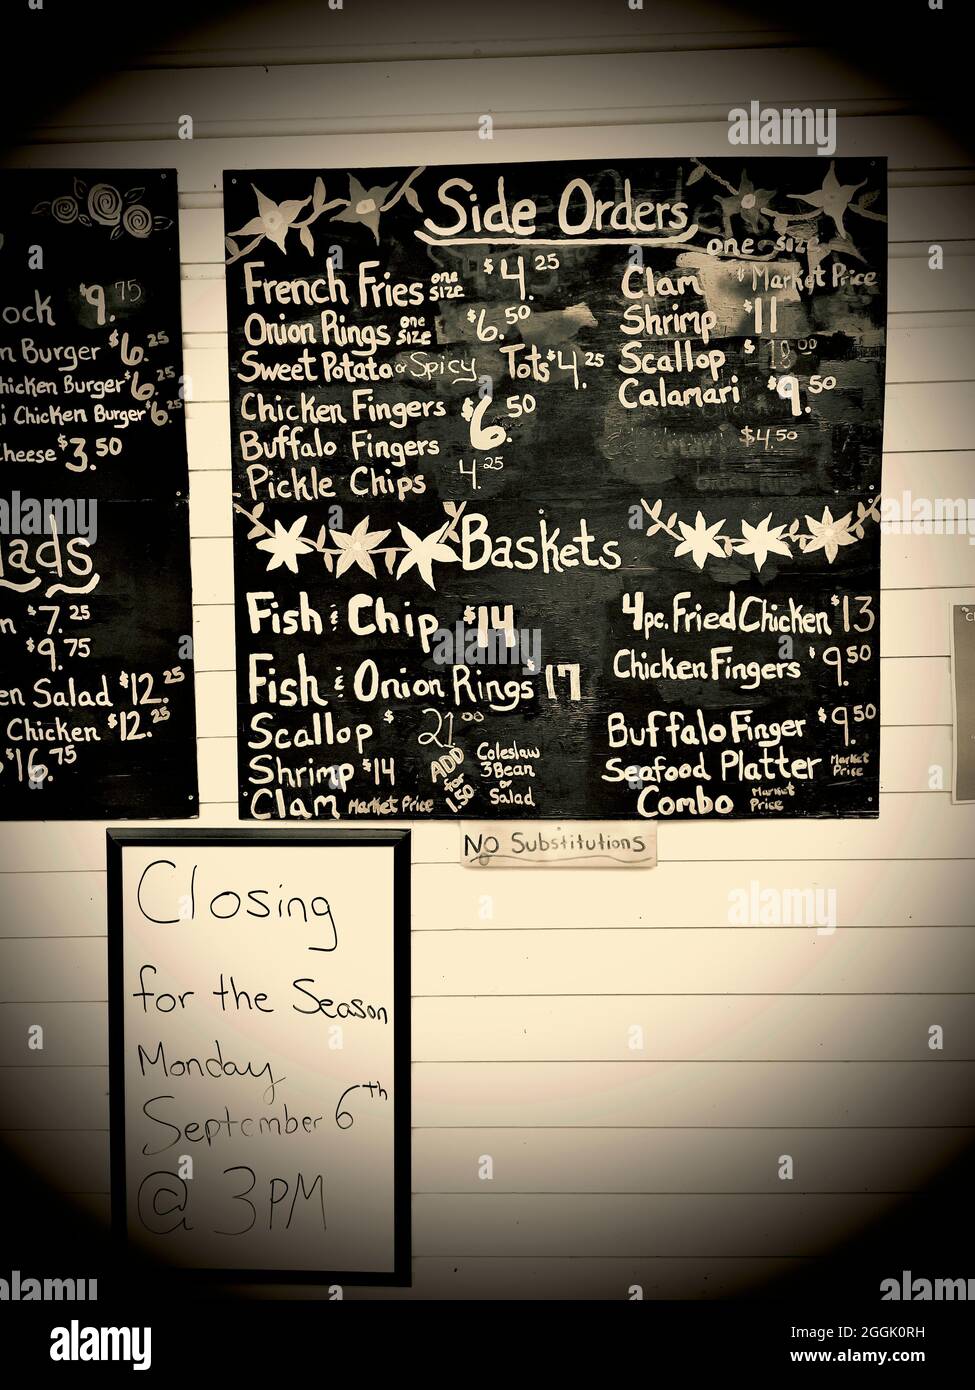 ock $9.75
Burger $6.25
hicken Burger $6.25
i Chicken Burger $6.25
heese $3.50
lads
n $7.25
$9.75
en Salad $12.25
Chicken $12.25
$16.75
Side Orders
French Fries one size $4.25
Onion Rings one size $6.50
Sweet Potato or Spicy Tots $4.25
Chicken Fingers $6.50
Buffalo Fingers
Pickle Chips 4.25
one size
Clam $ Market Price
Shrimp $11
Scallop $18.00
Calamari $9.50
$4.50
Baskets
Fish & Chip $14
Fish & Onion Rings $17
Scallop $21.00
Shrimp $14
Clam Market Price
ADD for 1.50
Coleslaw
3 Bean
or
Salad
4pc. Fried Chicken $13
Chicken Fingers $9.50
Buffalo Finger $9.50
Seafood Platter Market Price
Combo Market Price
NO Substitutions
Closing
for the Season
Monday
September 6th
@ 3PM
alamy
alamy
Image ID: 2GGK0RH
www.alamy.com